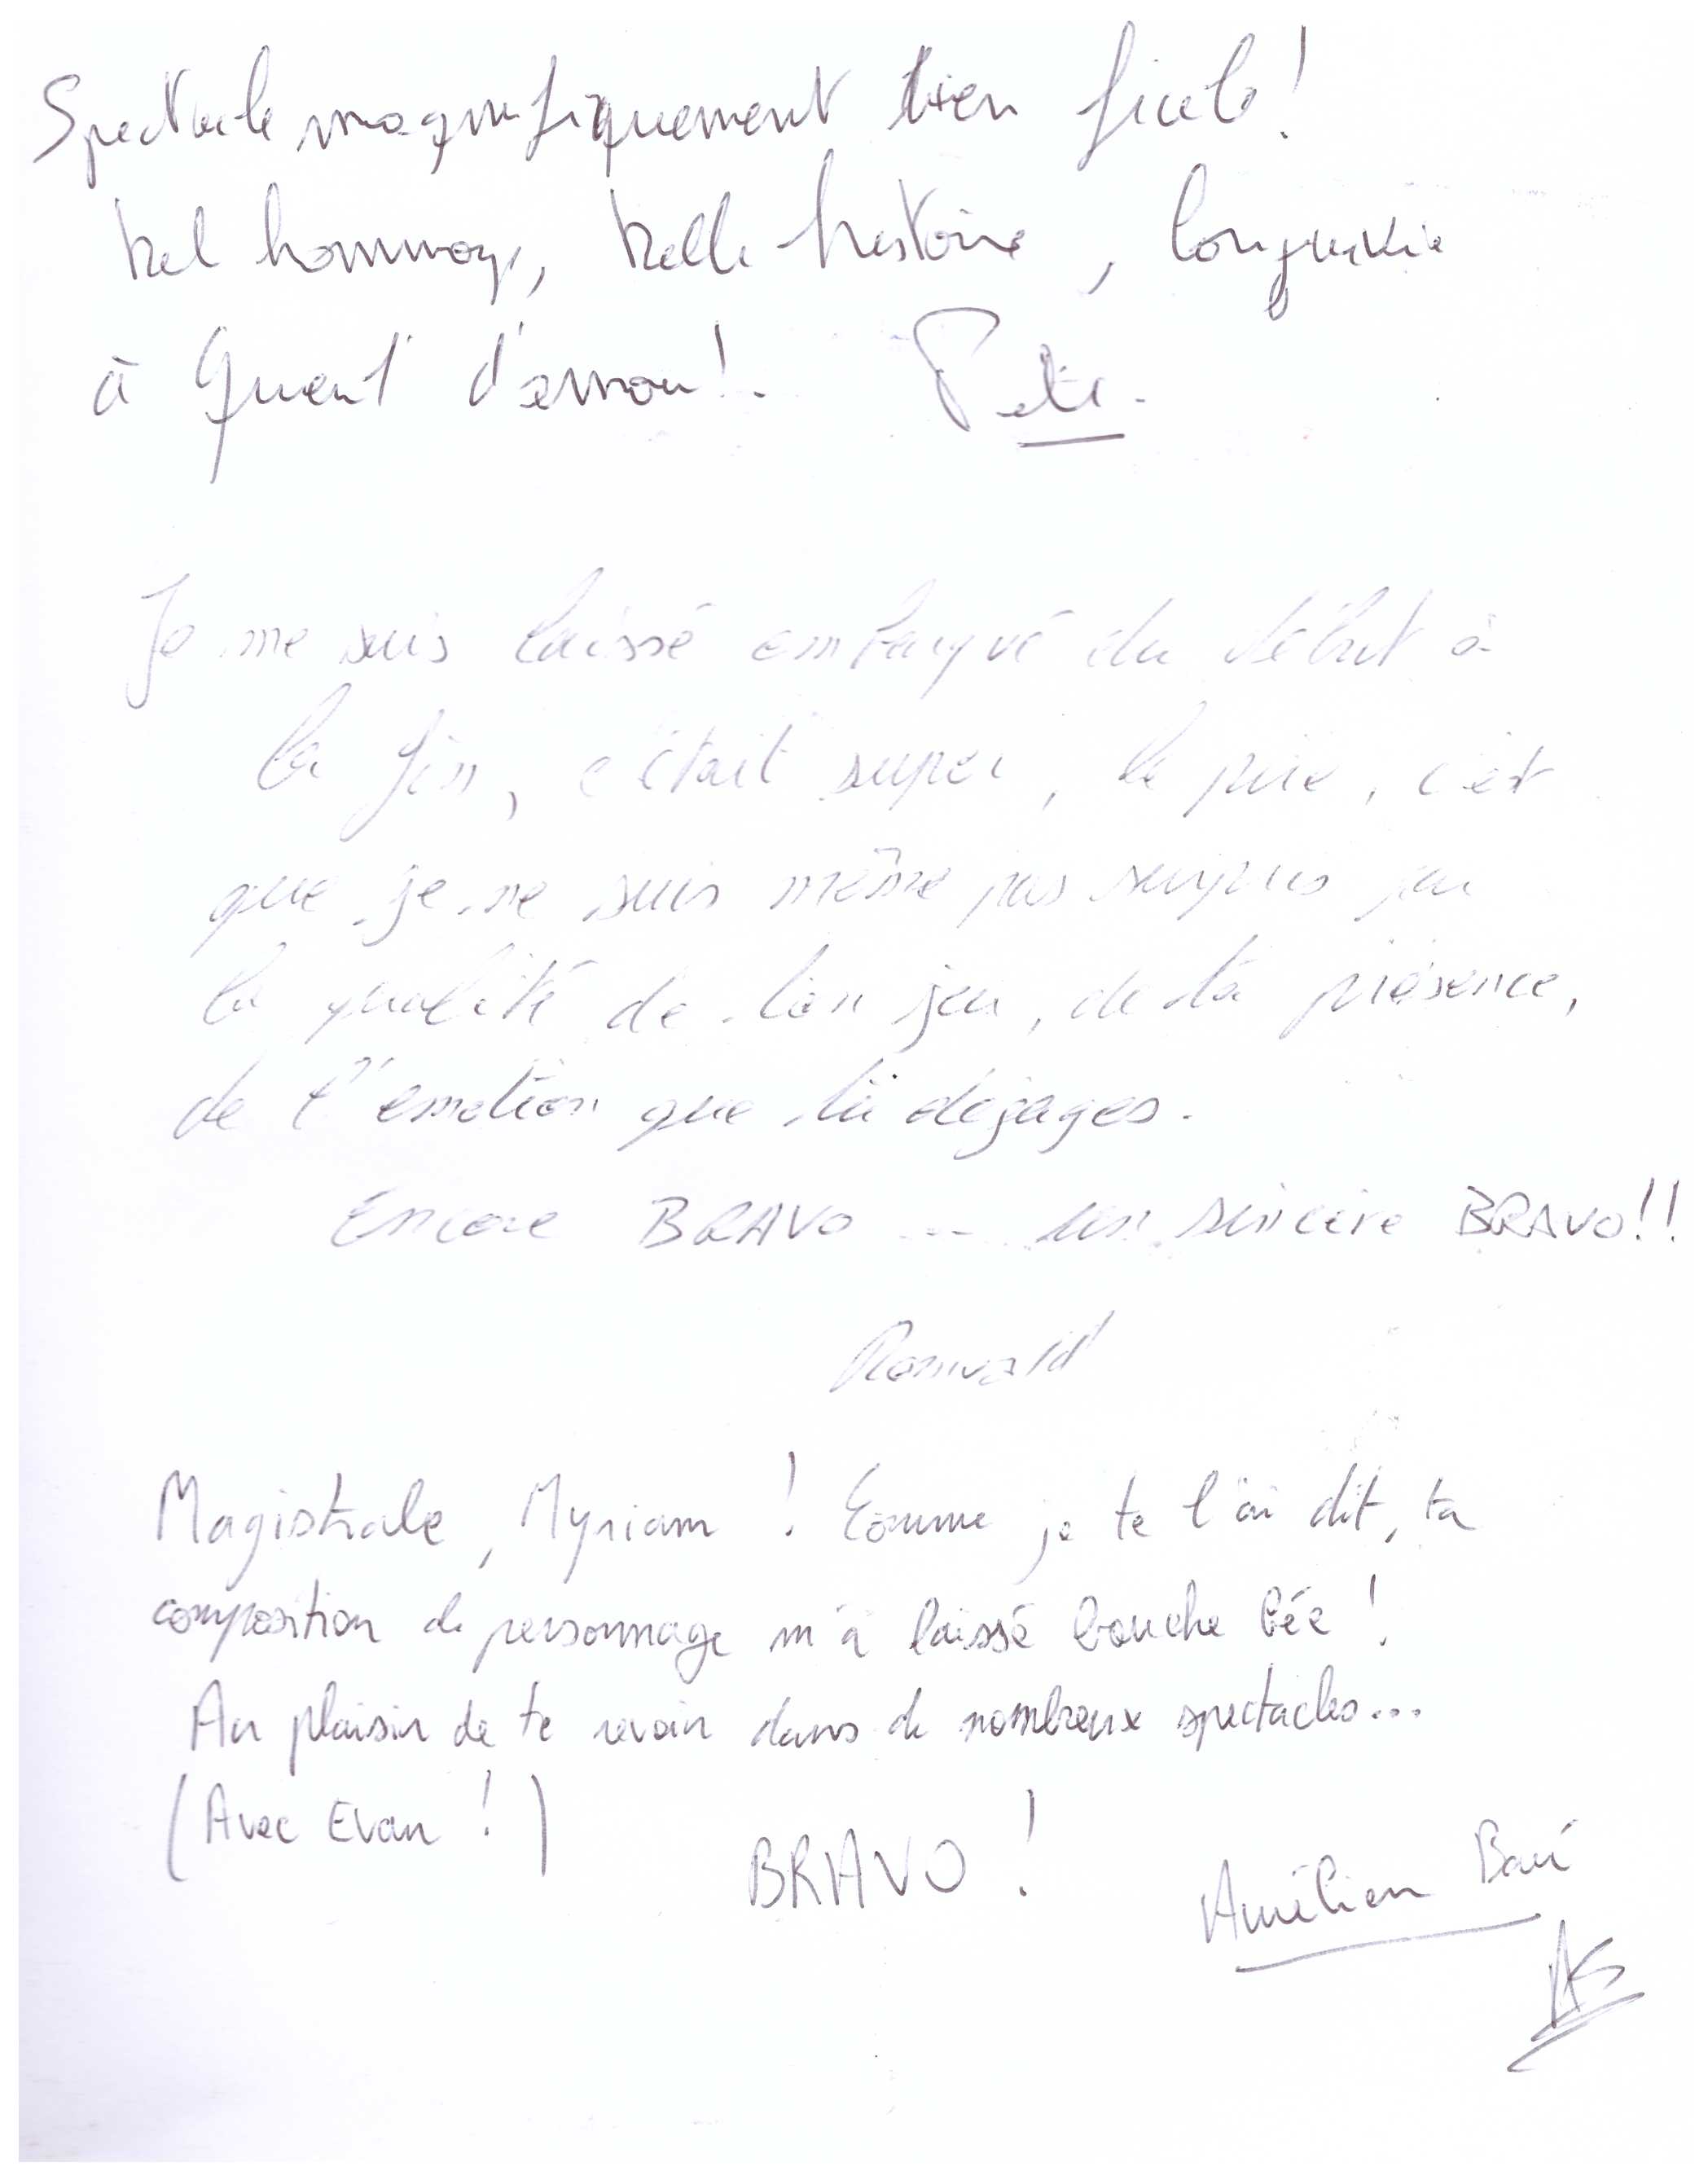 Spectacle magnifiquement bien ficelé!
bel hommage, belle histoire, longue vie
à
Je me suis laissé embarqué du début à
la fin, c'était super, le pire, c'est
que je ne suis même pas surpris par
la qualité de ton jeu, de ta présence,
de l'émotion que tu dégages.
Encore BRAVO ... un sincère BRAVO!!
Romuald
Magistrale, Myriam ! Comme je te l'ai dit, ta
composition de personnage m'a laissé bouche bée !
Au plaisir de te revoir dans de nombreux spectacles...
(Avec Evan !)
BRAVO !
Aurélien